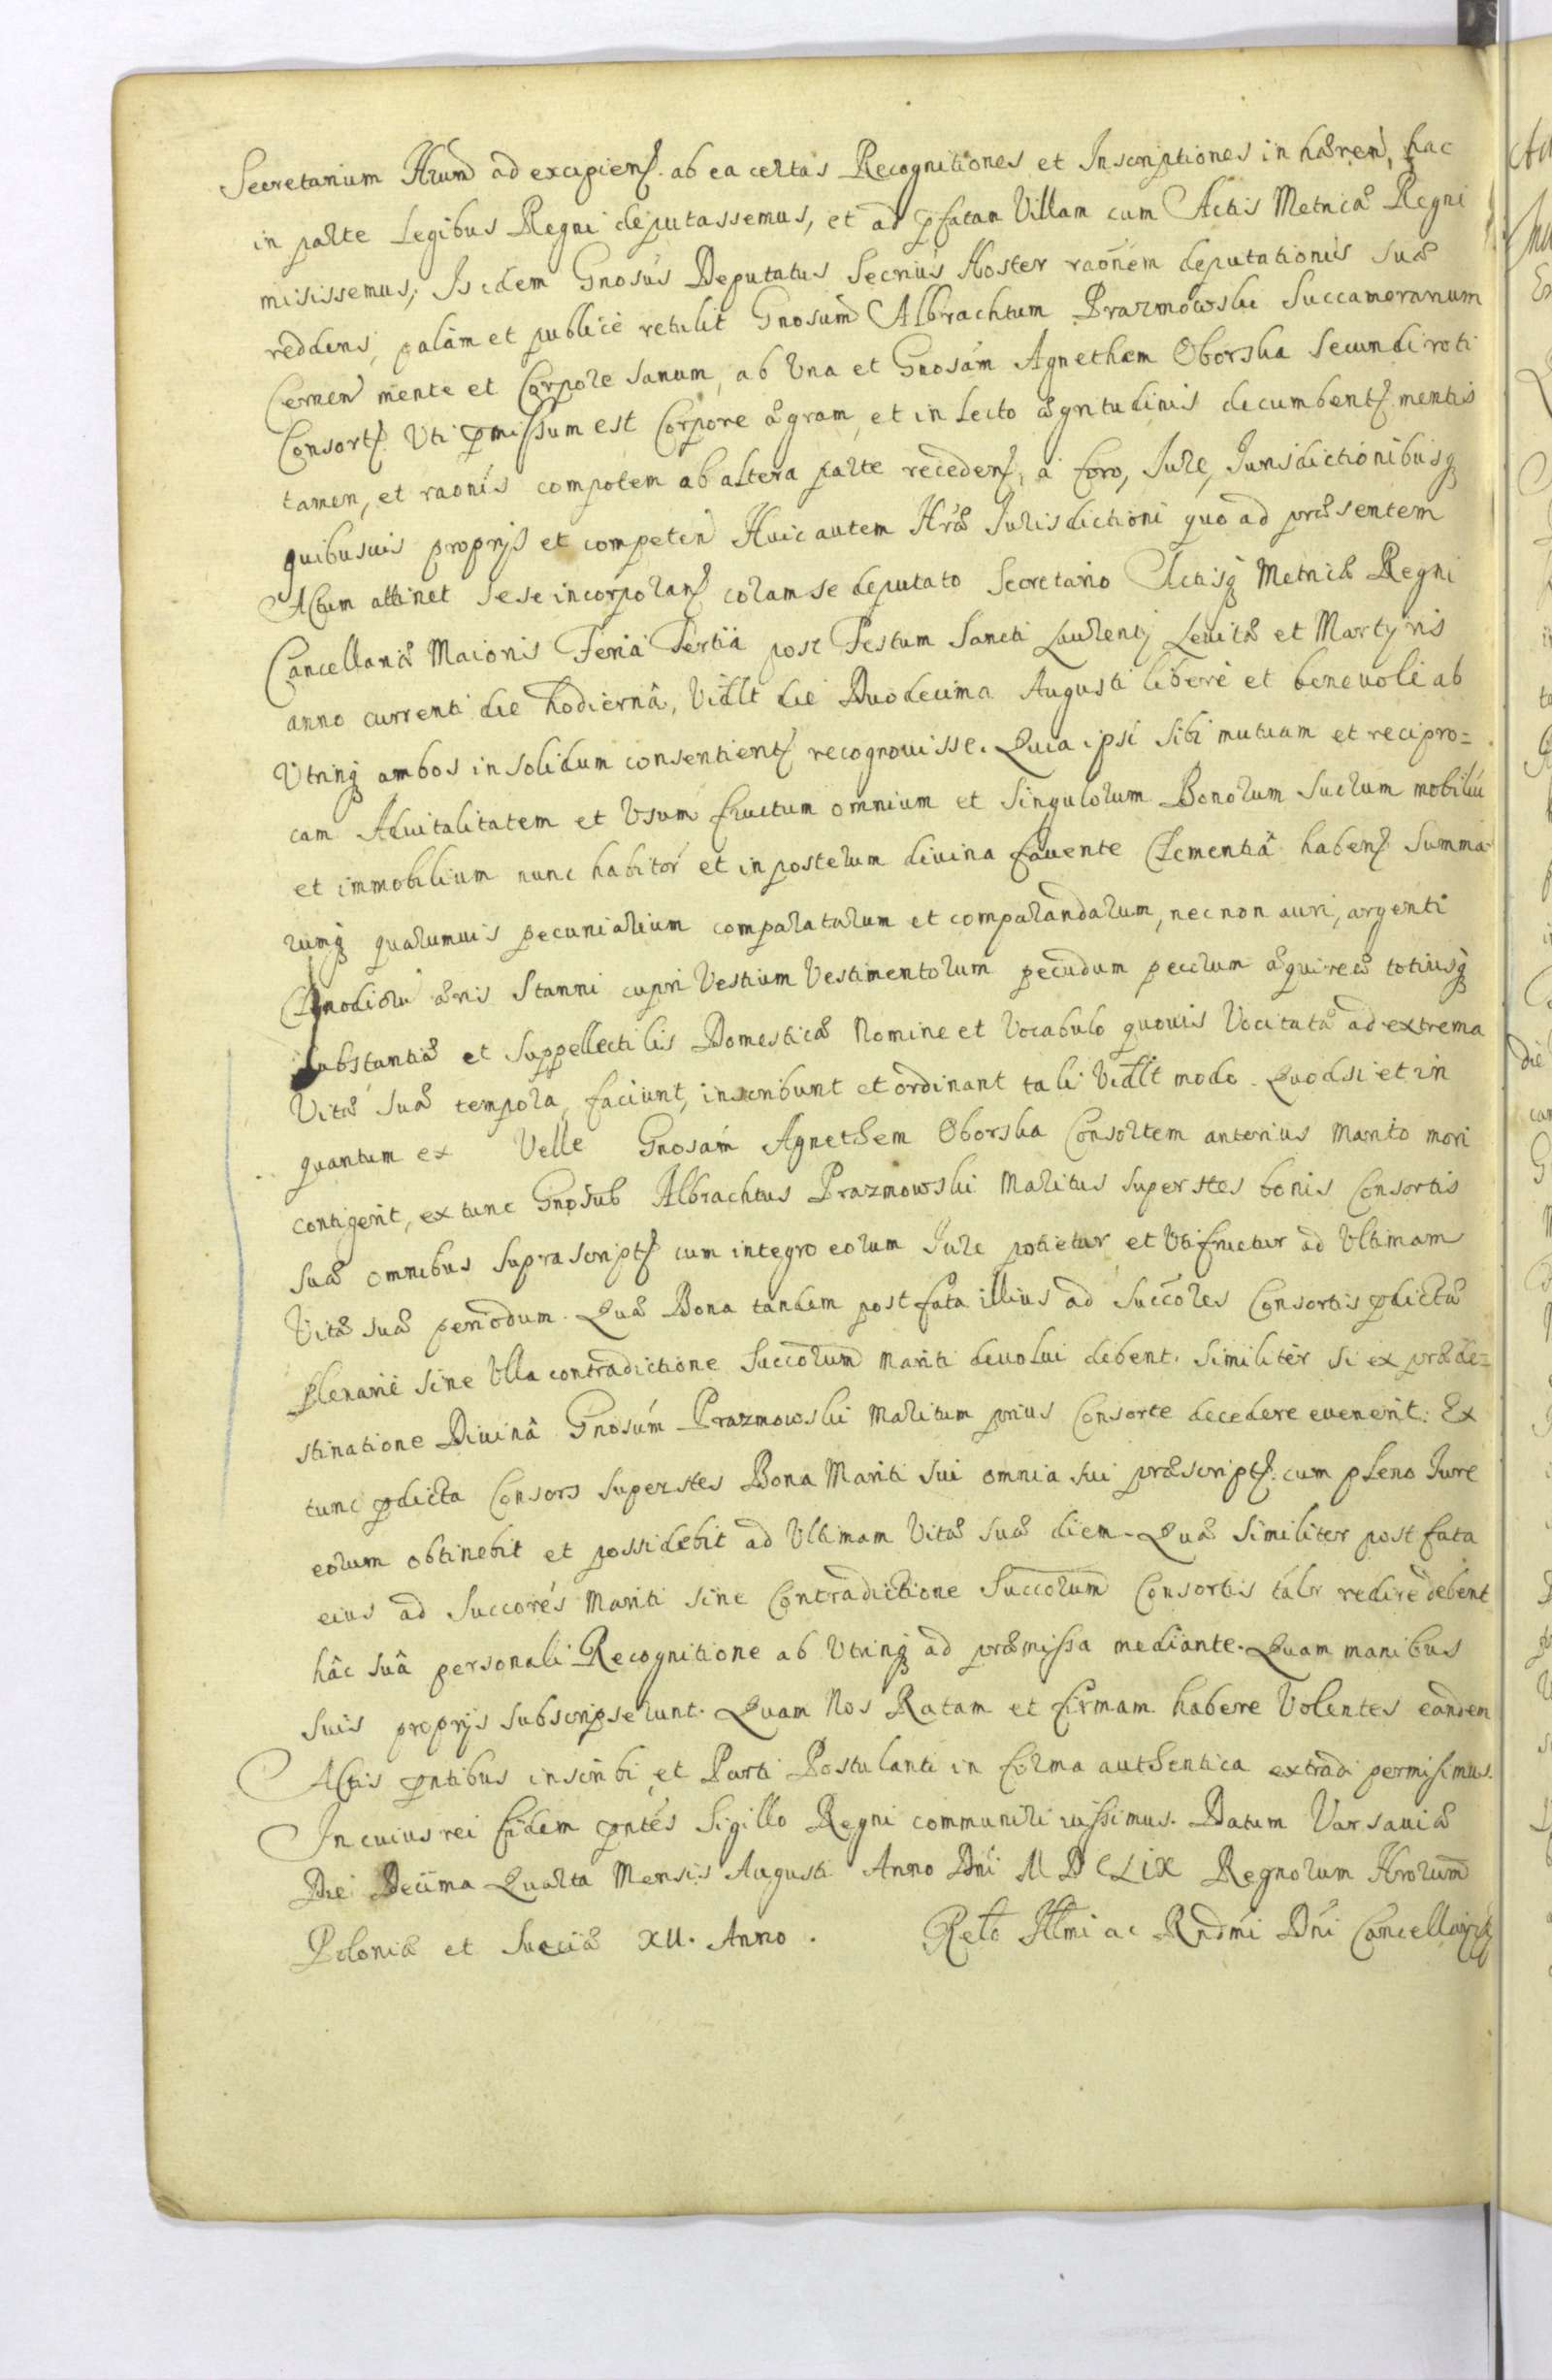 Secretarium Nrum ad excipien. ab ea certas Recognitiones et Inscriptiones inhæren, hac
in parte Legibus Regni deputassemus, et ad pfatam Villam cum Actis Metricæ Regni
misissemus, Isidem Gnosus Deputatus Secrius Noster raonem deputationis suæ
reddens, palam et publice retulit Gnosum Albrachtum Prazmowski Succamerarium
Cernen mente et Corpore sanum, ab Una et Gnosam Agnethem Oborska secundi voti
Consort. Uti pmissum est Corpore ægram, et in Lecto ægritudinis decumbent. mentis
tamen, et raonis compotem ab altera parte receden., a foro, Jure, Jurisdictionibusq
quibusuis proprijs et competen Huic autem Nræ Jurisdictioni quo ad præsentem
Actum attinet sese incorporan. coram se deputato Secretario Actisq Metricæ Regni
Cancellariæ Maioris Feria Tertia post Festum Sancti Laurentij Leuitæ et Martyris
anno currenti die hodiernâ, Vidlt die Duodecima Augusti libere et beneuole ab
Utrinq ambos insolidum consentient. recognouisse. Quia ipsi sibi mutuam et recipro=
cam Aduitalitatem et Usum fructum omnium et singulorum Bonorum suorum mobiliu
et immobilium nunc habitor et inposterum diuina fauente Clementiâ haben. summa
rumq quarumuis pecuniarium comparatarum et comparandarum, necnon auri, argenti
Clenodioru æris Stanni cupri Vestium Vestimentorum pecudum pecorum æquireæ totiusq
substantiæ et suppellectilis Domesticæ Nomine et Vocabulo quouis Vocitatæ ad extrema
Vitæ suæ tempora, faciunt, inscribunt et ordinant tali Vidlt modo. Quodsi et in
quantum ex Velle Gnosam Agnethem Oborska Consortem anterius Marito mori
contigerit, ex tunc Gnosub Albrachtus Prazmowski Maritus superstes bonis Consortis
suæ omnibus suprascript. cum integro eorum Jure potietur et Utifruetur ad Ultimam
Vitæ suæ periodum. Quæ Bona tandem post fata illius ad Succores Consortis pdictæ
plenarie sine Ulla contradictione Succorum Mariti deuolui debent. Similiter si ex præde=
stinatione Diuinâ Gnosum Prazmowski Maritum prius Consorte decedere euenerit. Ex
tunc pdicta Consors superstes Bona Mariti sui omnia sui præscript. cum pleno Jure
eorum obtinebit et possidebit ad Ultimam Vitæ suæ diem. Quæ similiter post fata
eius ad Succores Mariti sine Contradictione Succorum Consortis talr redire debent
hâc suâ personali Recognitione ab Utrinq ad præmissa mediante. Quam manibus
suis proprijs subscripserunt. Quam Nos Ratam et firmam habere Volentes eandem
Actis pntibus inscribi et Parti Postulanti in forma authentica extradi permisimus.
In cuius rei fidem pntes Sigillo Regni communiri iussimus. Datum Varsauiæ
Die Decima Quarta Mensis Augusti Anno Dni M D C LIX Regnorum Nrorum
Poloniæ et Sueciæ XII. Anno. Relo Illmi ac Rndmi Dni Cancellarij